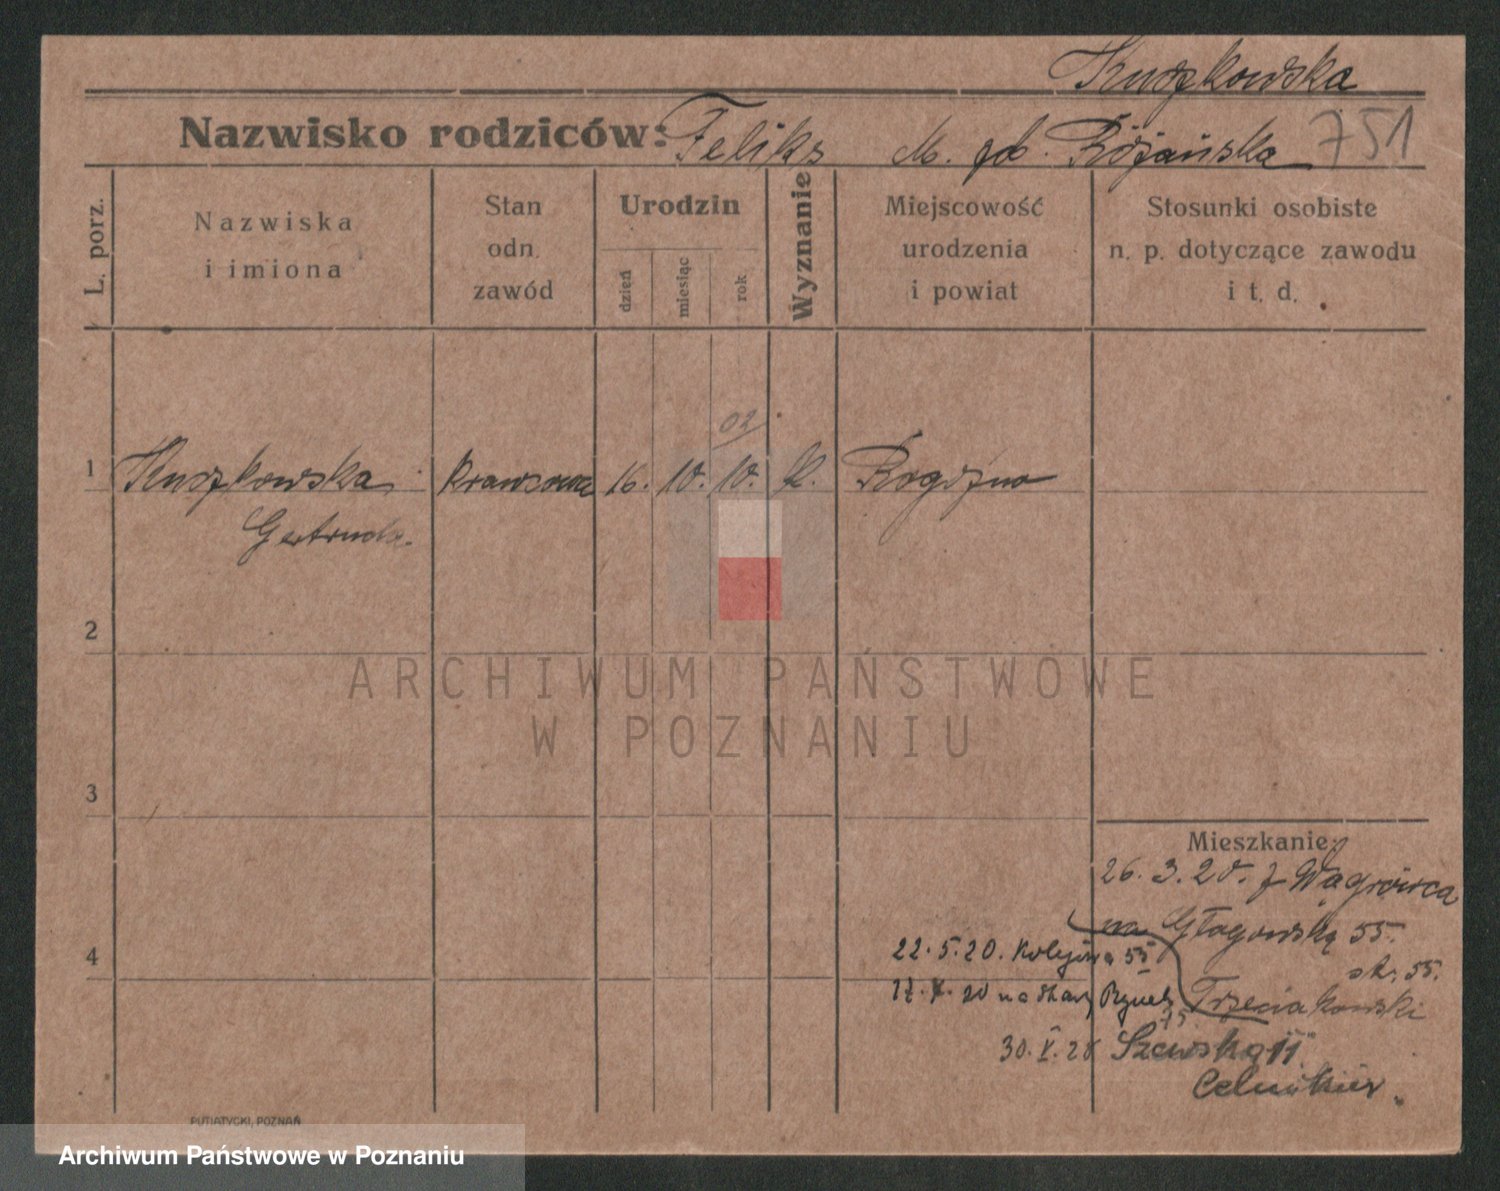 Kuszkowska
Nazwisko rodziców: Feliks M. zd. Różańska 751
L. porz.
Nazwiska
i imiona
Stan
odn.
zawód
Urodzin
dzień
miesiąc
rok
Wyznanie
Miejscowość
urodzenia
i powiat
Stosunki osobiste
n. p. dotyczące zawodu
i t. d.
02
1 Kuszkowska Krawcowa 16. 10. 10. k. Rogoźno
Gertruda
2
ARCHIWUM PAŃSTWOWE
W POZNANIU
3
Mieszkanie:
26. 3. 20. z Wągrówca
na Głogowską 55.
4 22. 5. 20. Kolejowa 55
55.
na Stary Rynek Trzeciakowski
75
30. V. 28 Szewska 11
PUTIATYCKI, POZNAŃ
Archiwum Państwowe w Poznaniu